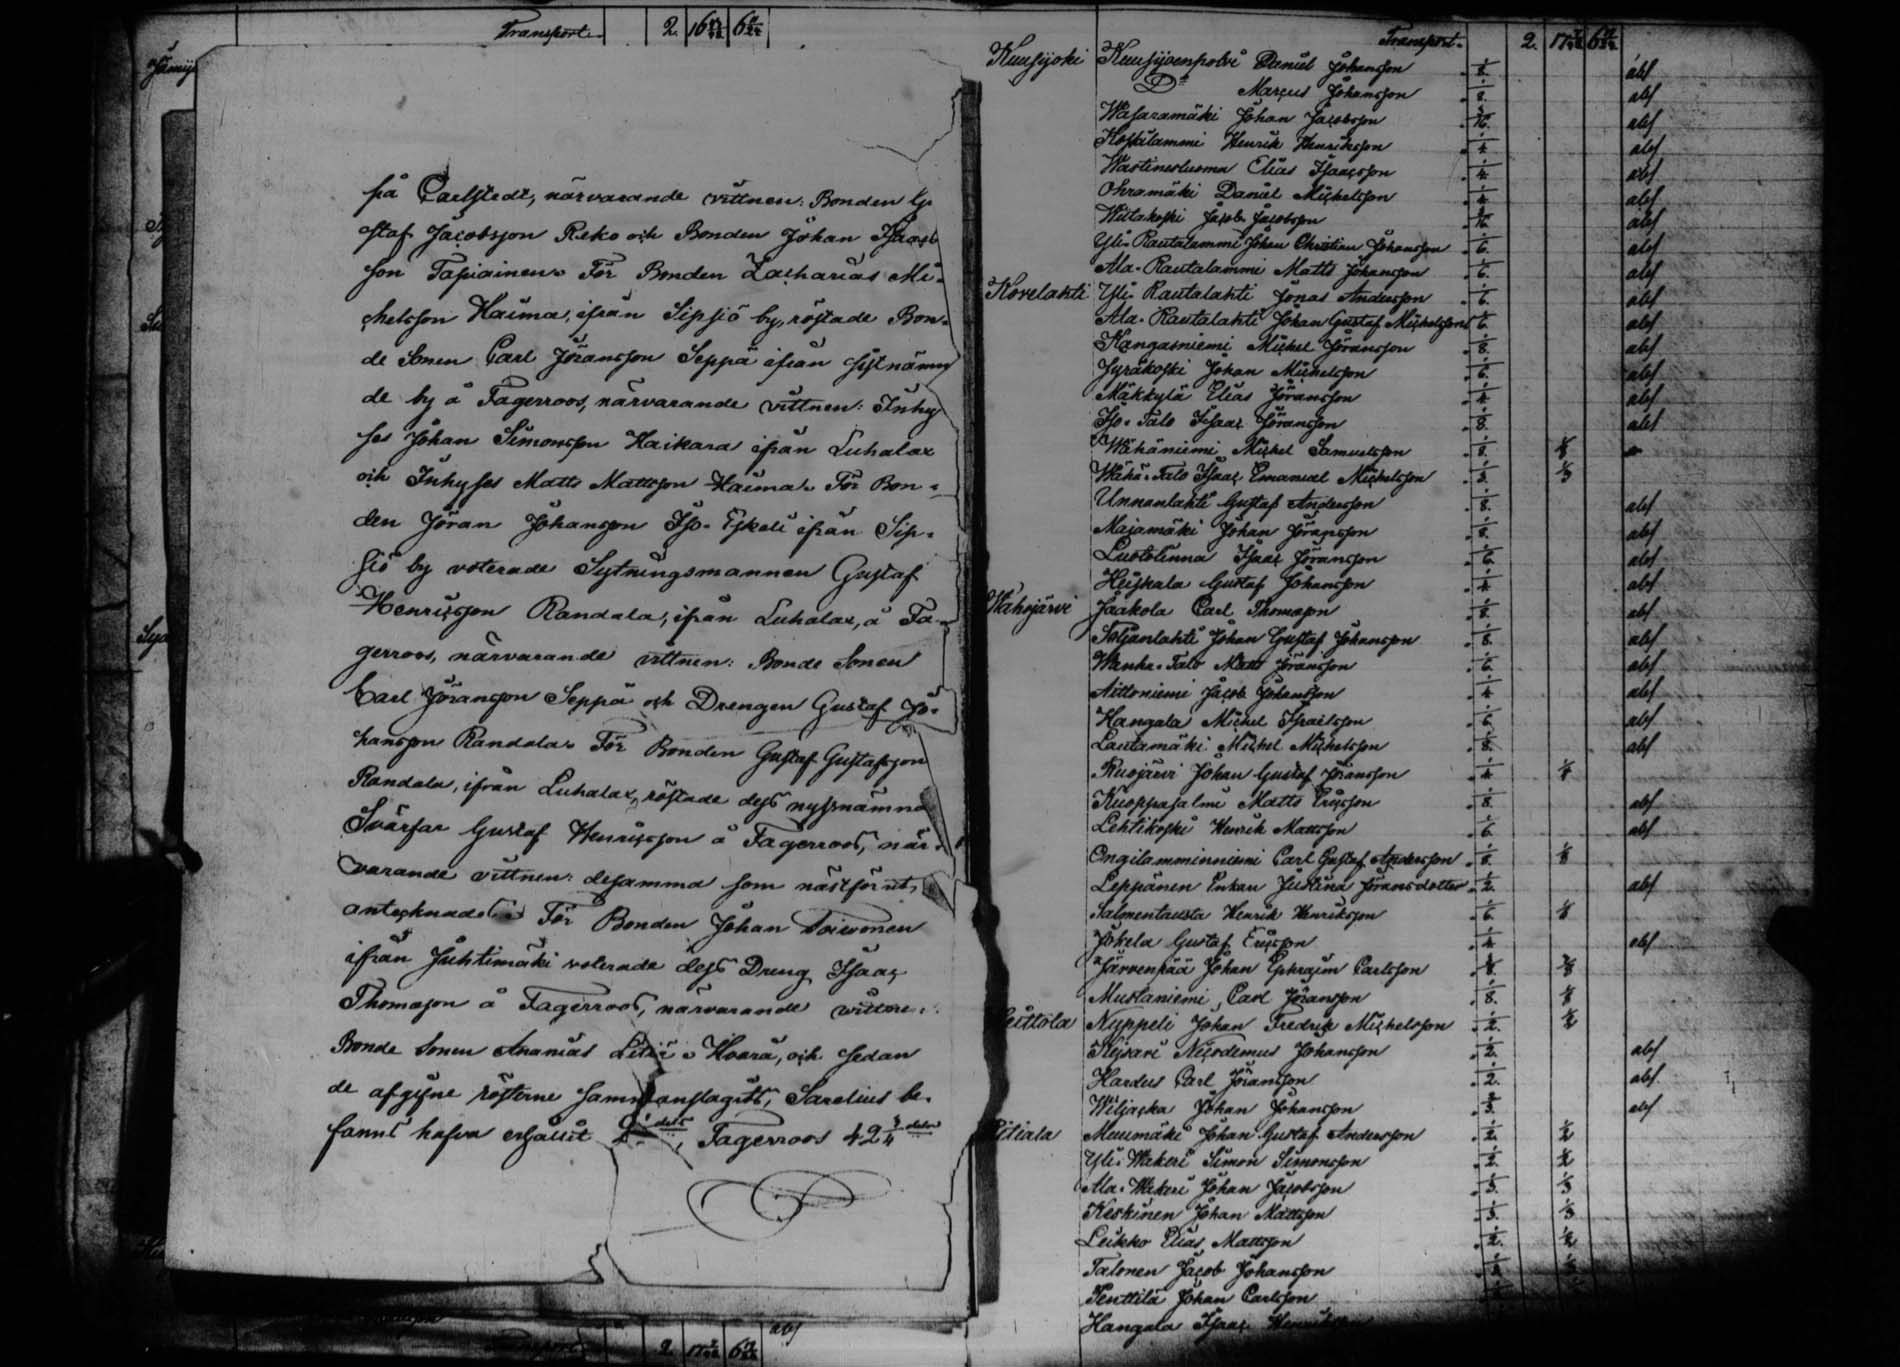 Transport 2. 6
på Carlstedt, närvarande vittnen: Bonden Gu
staf Jacobsson Reko och Bonden Johan Isaacs
son Tapiainen. För Bonden Zacharias Mi-
chelsson Haima, ifrån Sipsiö by, röstade Bon-
de Sonen Carl Jöransson Seppä ifrån sistnämn
de by å Fagerroos, närvarande vittnen: Inhy
ses Johan Simonsson Haikara ifrån Luhalax
och Inhyses Matts Mattsson Haima. För Bon-
den Jöran Johansson Iso-Eskeli ifrån Sip-
siö by voterade Sytningsmannen Gustaf
Henricsson Randala, ifrån Luhalax, å Fa-
gerroos, närvarande vittnen: Bonde Sonen
Carl Jöransson Seppä och Drengen Gustaf Jo-
hansson Randala. För Bonden Gustaf Gustafsson
Randala, ifrån Luhalax, röstade dess nyssnämnd
Svärfar Gustaf Henricsson å Fagerroos, när-
varande vittnen: desamma som nästförut
antecknades. För Bonden Johan Toivonen
ifrån Juhtimäki voterade dess Dreng Isaac
Thomasson å Fagerroos, närvarande vittne:
Bonde Sonen Ananias Hoara, och sedan
de afgifne rösterne sammanslagits, Sarelius be-
fanns hafva erhållit Fagerroos 42 3/4 delar
Transport. 2. 17 6
Kuusijoki Kuusijoenpolvi Daniel Johansson 1/8. abs
D:o Marcus Johansson 1/8. abs
Wasaramäki Johan Jacobsson abs
Koskilammi Henrik Henriksson 1/4 abs
Wastinesluoma Elias Isaacsson 1/4 abs
Ohramäki Daniel Michelsson 1/4 abs
Wiitakoski Jacob Jacobsson abs
Yli-Rautalammi Johan Christian Johansson 1/6. abs
Ala-Rautalammi Matts Johansson 1/6. abs
Kovelahti Yli-Rautalahti Jonas Andersson 1/6. abs
Ala-Rautalahti Johan Gustaf Michelsson 1/6. abs
Kangasniemi Michel Jöransson 1/8. abs
Jyräkoski Johan Michelsson 1/6. abs
Mäkkylä Elias Jöransson 1/4 abs
Iso-Talo Isaac Jöransson 1/8. abs
Wähäniemi Michel Samuelsson 1/8. 1/8
Wähä-Talo Isaac Emanuel Michelsson 1/3. 1/3
Unnanlahti Gustaf Andersson 1/8. abs
Majamäki Johan Jöransson 1/8. abs
Luotolinna Isaac Jöransson 1/6. abs
Heiskala Gustaf Johansson 1/4 abs
Wahojärvi Jaakola Carl Thomasson 1/8. abs
Soljanlahti Johan Gustaf Johansson 1/8. abs
Wanha-Talo Matts Jöransson 1/6. abs
Aittoniemi Jacob Johansson 1/4 abs
Hangala Michel Israelsson 1/6. abs
Lautamäki Michel Michelsson 1/8. abs
Ruojärvi Johan Gustaf Jöransson 1/4
Kuoppasalmi Matts Ericsson 1/8. abs
Lehtikoski Henrik Mattsson 1/6. abs
Ongilamminniemi Carl Gustaf Andersson 1/8. 1/8
Leppänen Enkan Justina Jöransdotter 1/2. abs
Salmentausta Henrik Henriksson 1/6.
Jokela Gustaf Ericsson 1/4 abs
Järvenpää Johan Ephraim Carlsson 3/8. 3/8
Mustaniemi Carl Jöransson 1/8. 1/8
Nyppeli Johan Fredrik Michelsson 1/2. 1/2
Keisari Nicodemus Johansson 1/2. abs
Hardus Carl Jöransson 1/2. abs
Wiljacka Johan Johansson abs
Muumäki Johan Gustaf Andersson 1/2. 1/2
Yli-Wakeri Simon Simonsson 1/2. 1/2
Ala-Wakeri Johan Jacobsson 1/3. 1/3
Keskinen Johan Mattsson 1/3. 1/3
Leikko Elias Mattsson 1/2. 1/2
Talonen Jacob Johansson
Penttilä Johan Carlsson
Hangala Isaac
Transport 2. 17 6 abs